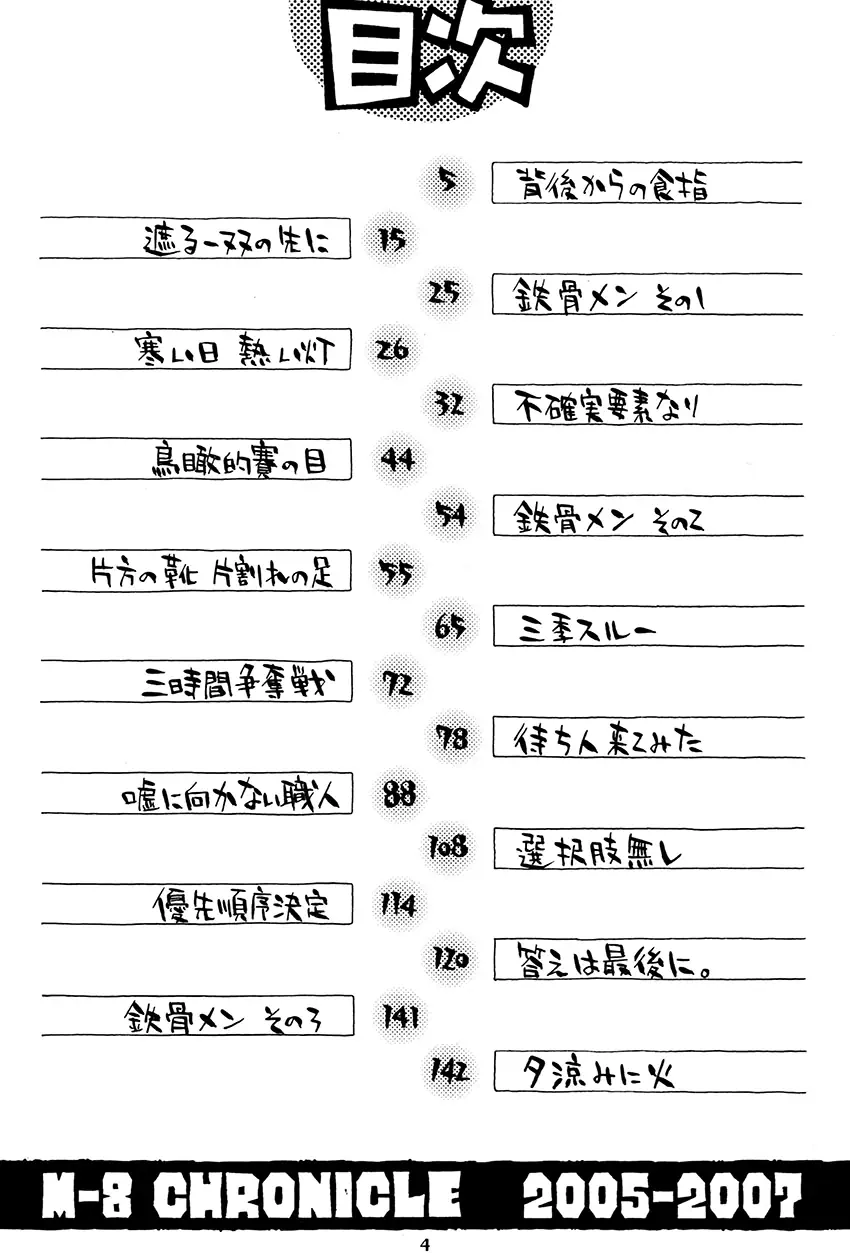 目次
5 背後からの食指
遮る一双の先に 15
25 鉄骨メン その1
寒い日 熱い灯 26
32 不確実要素なり
鳥瞰的賽の目 44
54 鉄骨メン その2
片方の靴 片割れの足 55
65 三季スルー
三時間争奪戦 72
78 待ち人来てみた
嘘に向かない職人 88
108 選択肢無し
優先順序決定 114
120 答えは最後に。
鉄骨メン その3 141
142 夕涼みに火
M-8 CHRONICLE 2005-2007
4